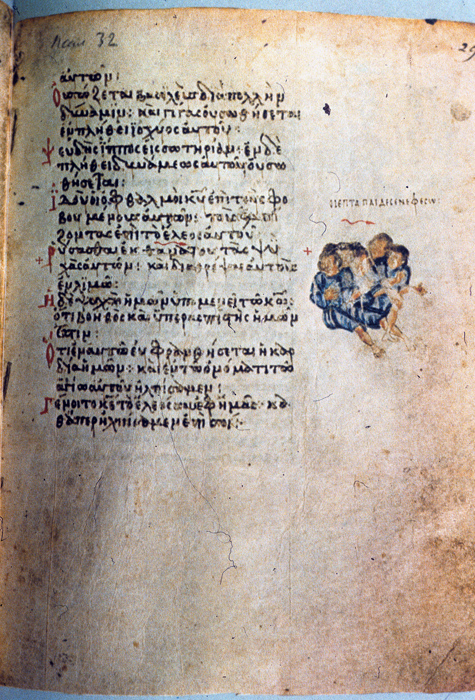 Псал 32
29
αὐτῶν:
Οὐ σώζεται βασιλεὺς διὰ πολλὴν
δύναμιν· καὶ γίγας οὐ σωθήσεται
ἐν πλήθει ἰσχύος αὐτοῦ:
Ψευδὴς ἵππος εἰς σωτηρίαν· ἐν δὲ
πλήθει δυνάμεως αὐτοῦ οὐ σω
θήσεται:
Ἰδοὺ οἱ ὀφθαλμοὶ κυ ἐπὶ τοὺς φο
βουμένους αὐτόν· τοὺς ἐλπί
ζοντας ἐπὶ τὸ ἔλεος αὐτοῦ
Ῥύσασθαι ἐκ θανάτου τὰς ψυ
χὰς αὐτῶν· καὶ διαθρέψαι αὐτοὺς
ἐν λιμῷ:
Ἡ δὲ ψυχὴ ἡμῶν ὑπομενεῖ τῷ κω:
ὅτι βοηθὸς καὶ ὑπερασπιστὴς ἡμῶν
ἐστιν:
Ὅτι ἐν αὐτῷ εὐφρανθήσεται ἡ καρ
δία ἡμῶν· καὶ ἐν τῷ ὀνόματι τῷ
ἁγίῳ αὐτοῦ ἠλπίσαμεν:
Γένοιτο κε τὸ ἔλεός σου ἐφ ἡμᾶς· κα
θάπερ ἠλπίσαμεν ἐπὶ σοί:
ΟΙ ΕΠΤΑ ΠΑΙΔΕΣ ΕΝ ΕΦΕΣΩ: